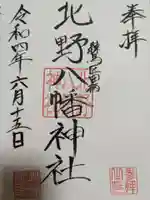 奉拝
北野八幡神社
令和四年六月十五日